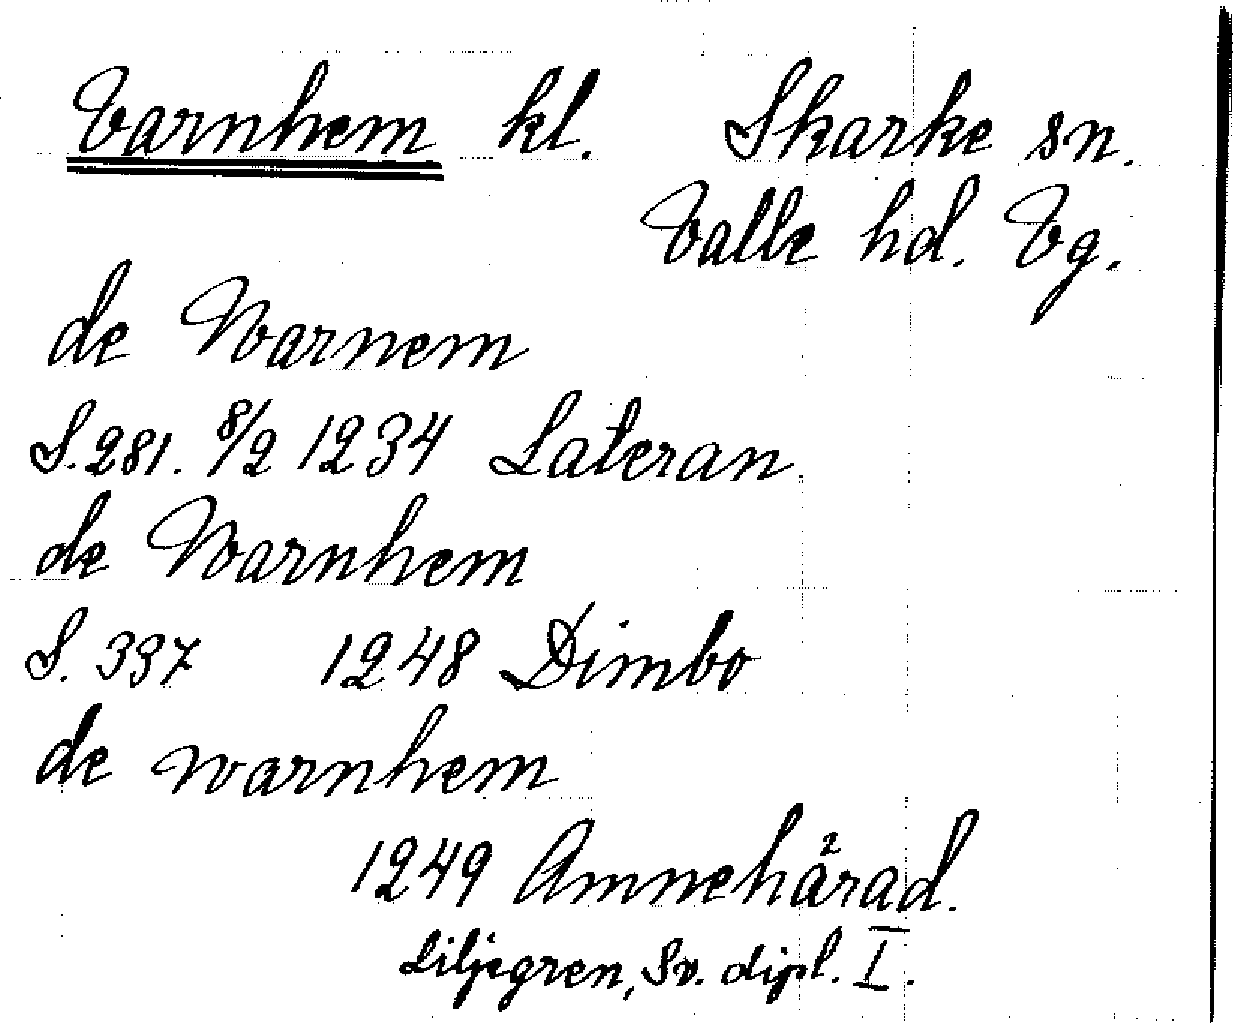 Varnhem kl. Skarke sn.
Valle hd. Vg.
de Warnem
S. 281. 8/2 1234 Lateran
de Warnhem
S. 337 1248 Dimbo
de warnhem
1249 Amnehärad.
Liljegren, Sv. dipl. I.